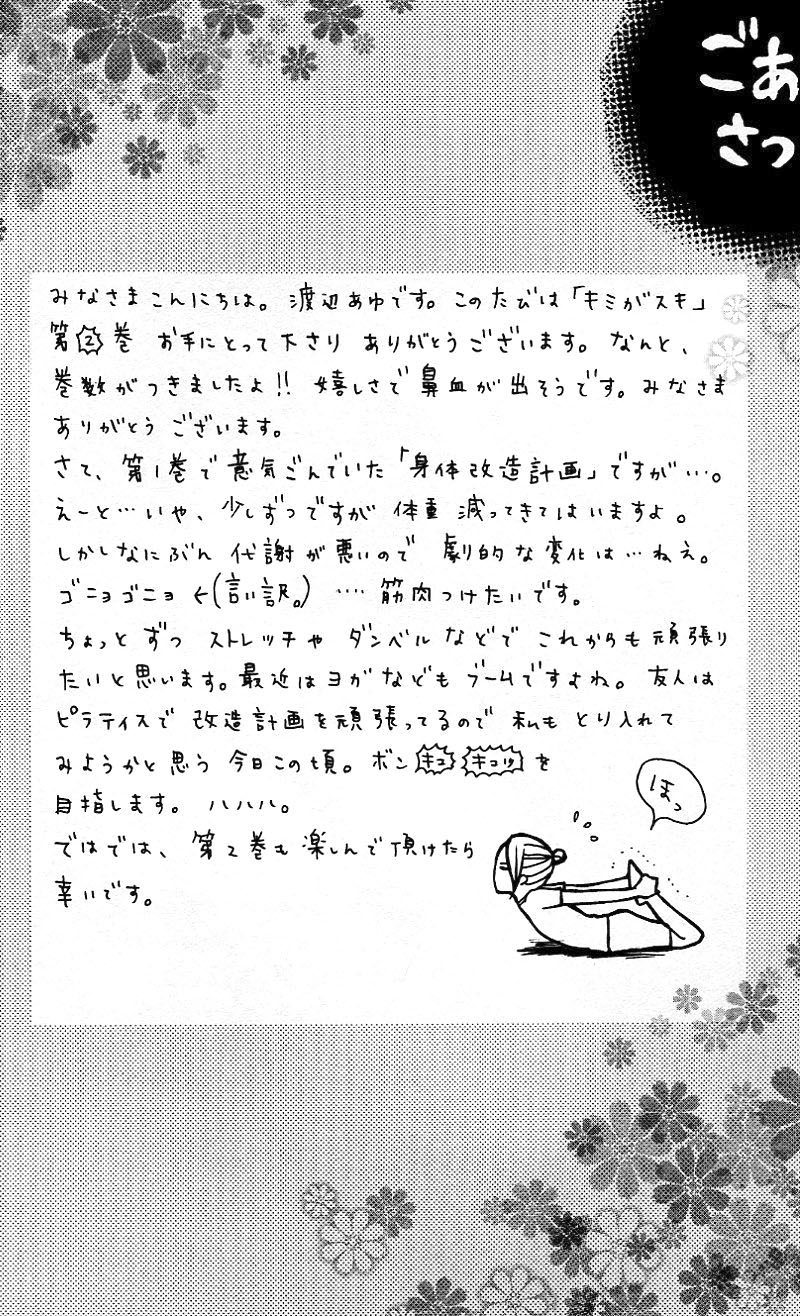 ごあ
さつ
みなさまこんにちは。渡辺あゆです。このたびは「キミがスキ」
第②巻 お手にとって下さり ありがとうございます。なんと、
巻数がつきましたよ!! 嬉しさで鼻血が出そうです。みなさま
ありがとうございます。
さて、第1巻で意気ごんでいた「身体改造計画」ですが…。
えーと…いや、少しずつですが 体重 減ってきてはいますよ。
しかしなにぶん 代謝が悪いので 劇的な変化は…ねえ。
ゴニョゴニョ ←(言い訳。) ‥‥ 筋肉つけたいです。
ちょっとずつ ストレッチや ダンベルなどで これからも頑張り
たいと思います。最近はヨガなどもブームですよね。友人は
ピラティスで 改造計画を頑張ってるので 私も とり入れて
みようかと思う 今日この頃。ボン キュ キュッ を
目指します。ハハハ。
ではでは、第2巻も楽しんで頂けたら
幸いです。
ほっ